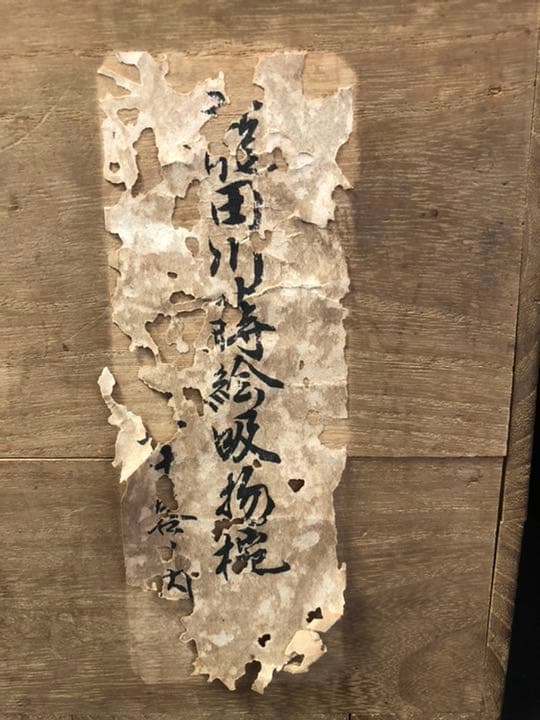 隅田川蒔絵吸物椀
十客